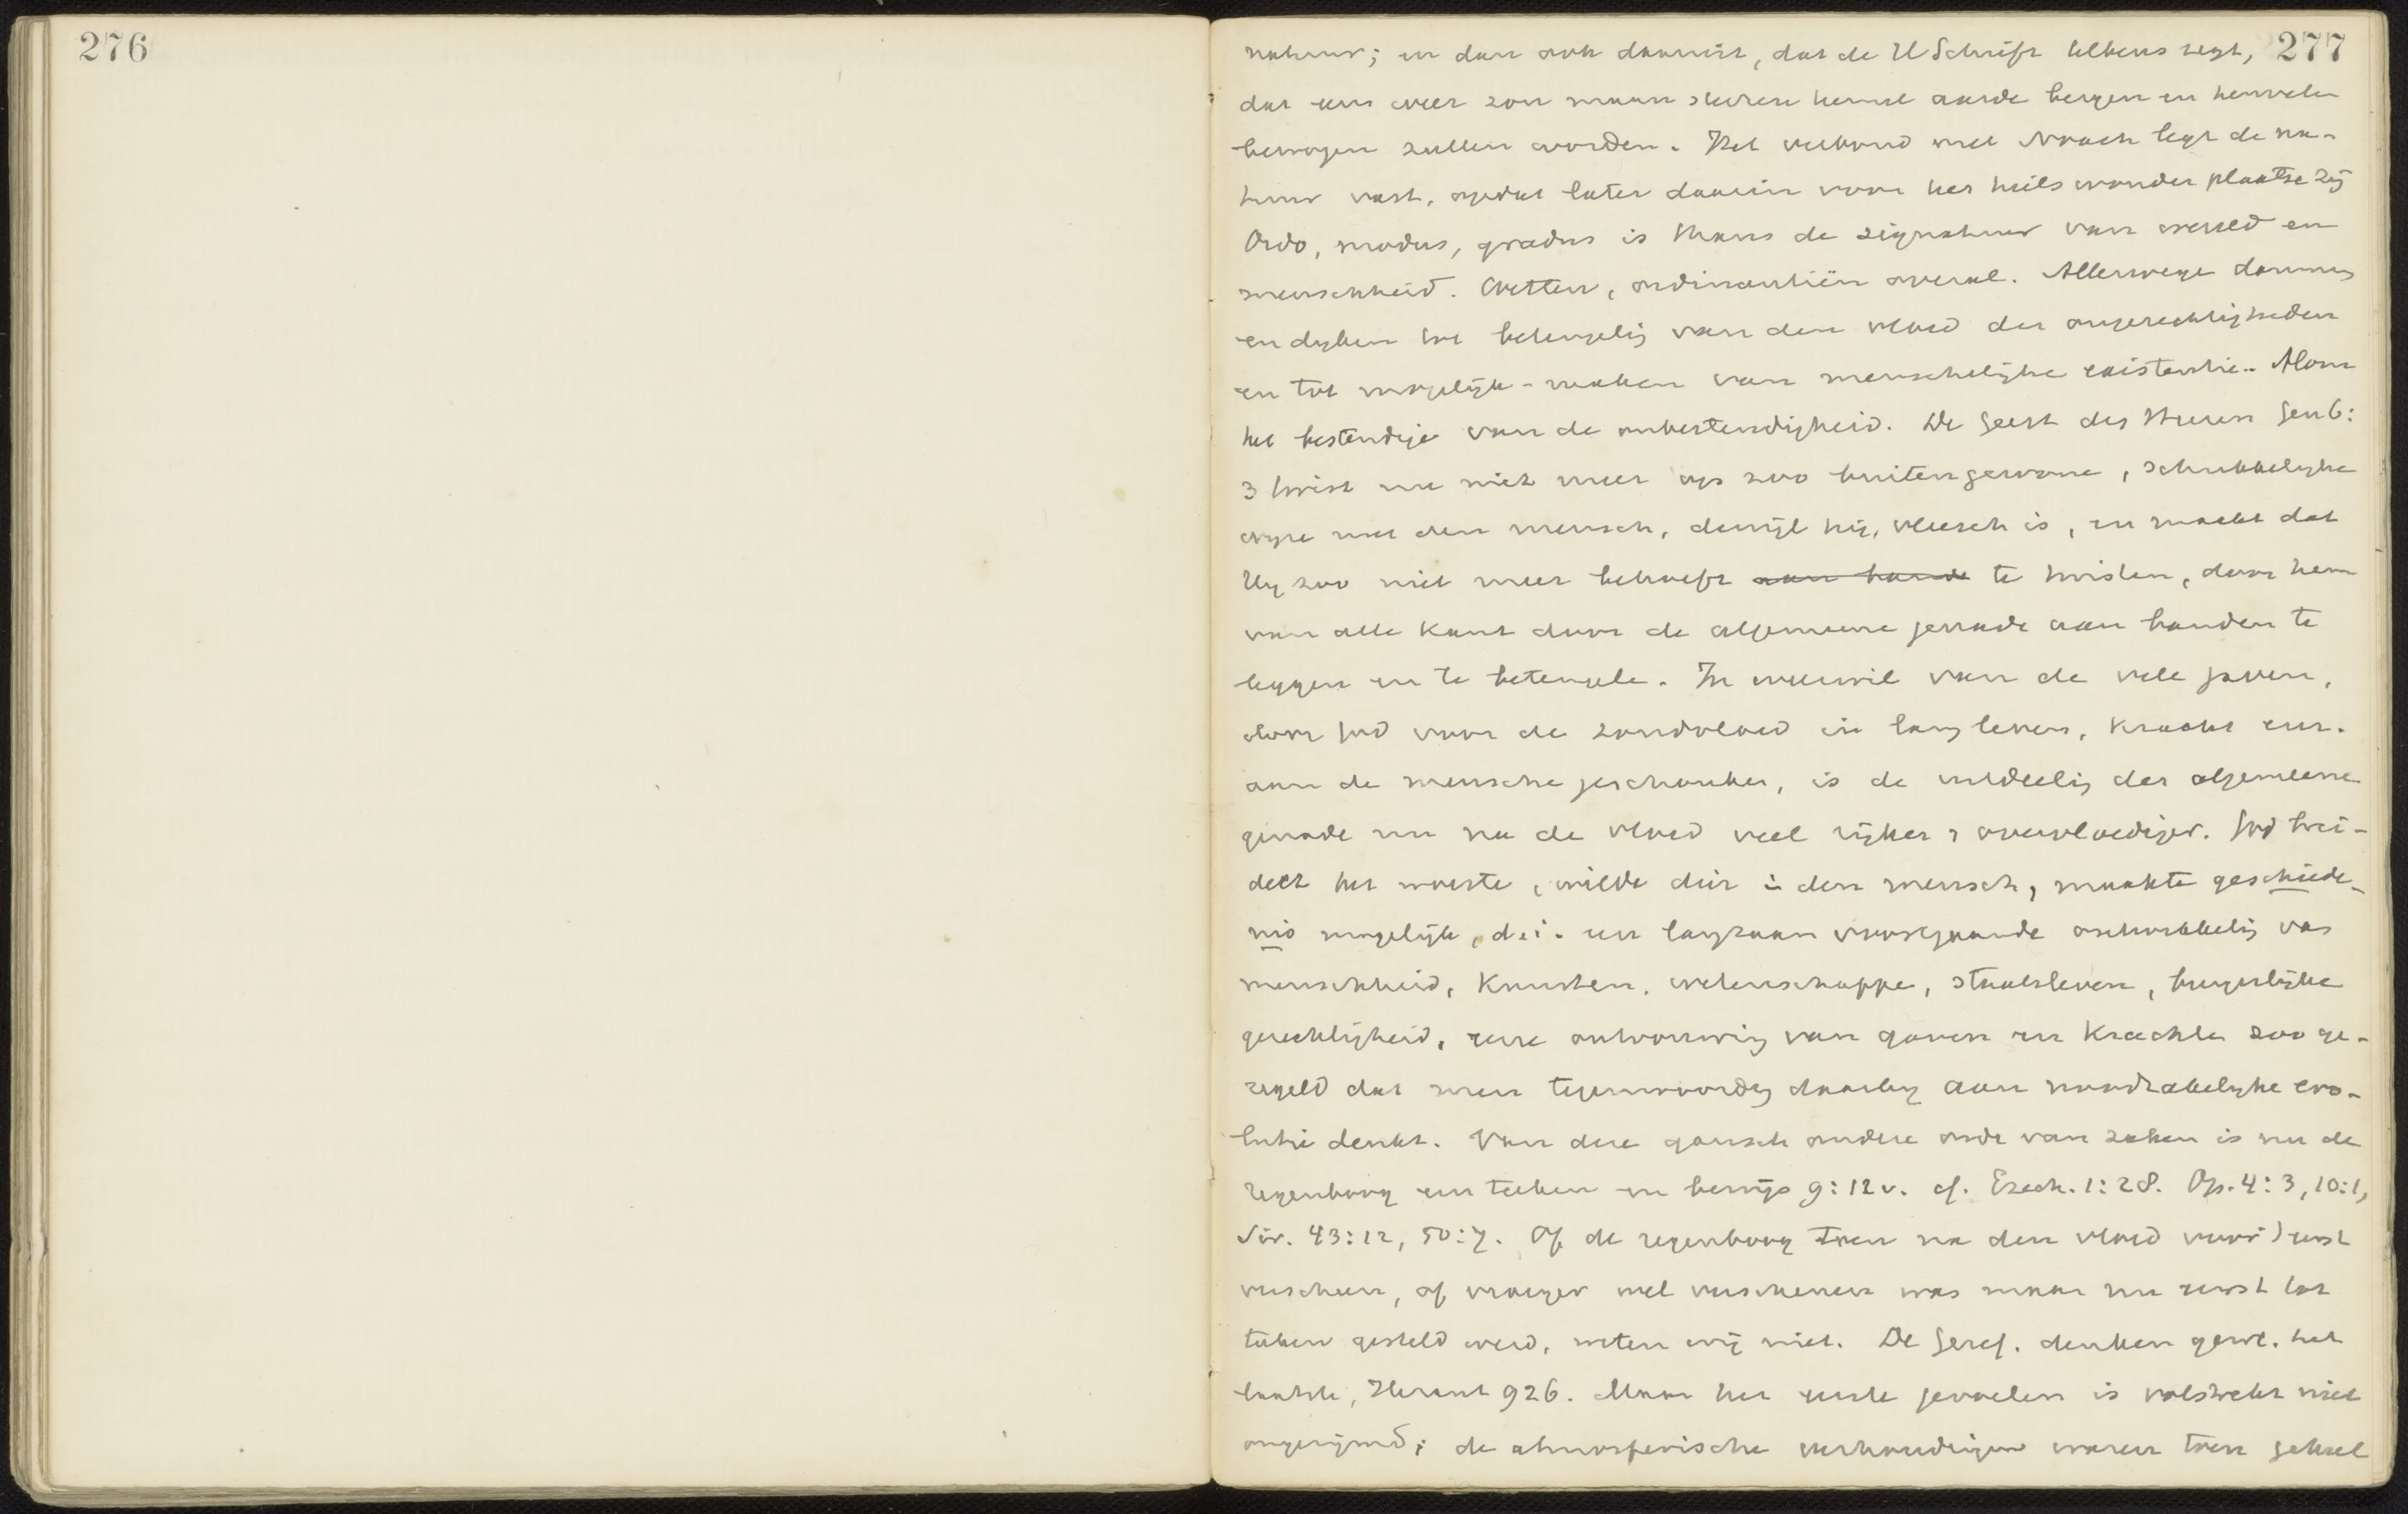 276
277
natuur; en dan ook daaruit, dat de H Schrift telkens zegt,
dat eens weer zon maan sterren hemel aarde bergen en heuvelen
bewogen zullen worden. Het verbond met Noach legt de na-
tuur vast, opdat later daarin voor het heilswonder plaatse zij
Ordo, modus, gradus is thans de signatuur van wereld en
menschheid. Wetten, ordinantiën overal. Allerwege dammen
en dyken tot beteugelig van den vloed der ongerechtigheden
en tot mogelijk-maken van menschelijke existentie. Alom
het bestendige van de onbestendigheid. De Geest des Heeren Gen 6:
3 twist nu niet meer op zoo buitengewone, schrikkelijke
wyze met den mensch, dewijl hij, vleesch is, en maakt dat
Hy zoo niet meer behoeft aan bande te twisten, door hem
van alle kant door de algemeene genade aan banden te
leggen en te beteugele. In weerwil van de vele gaven,
door God voor de zondvloed in lang leven, kracht enz.
aan de mensche geschonken, is de uitdeelig der algemeene
genade nu na de vloed veel rijker & overvloediger. God brei-
delt het woeste, wilde dier in den mensch, maakte geschiede-
nis mogelijk, d.i. een langzaam voortgaande ontwikkelig van
menschheid, kunsten, wetenschappe, staatsleven, burgerlijke
gerechtigheid, eene ontvouwing van gaven en krachte zoo ge-
regeld dat men tegenwoordig daarby aan noodzakelijke evo-
lutie denkt. Van deze gansch andere orde van zaken is nu de
regenboog een teeken en bewijs 9:12v. cf. Ezech. 1:28. Op. 4:3, 10:1,
Sir. 43:12, 50:7. Of de regenboog toen na den vloed voor 't eerst
verscheen, of vroeger wel verschenen was maar nu eerst tot
teeken gesteld werd, weten wij niet. De Geref. denken gew. het
laatste, Heraut 926. Maar het eerste gevoelen is volstrekt niet
ongerijmd; de atmosferische verhoudigen waren toen geheel